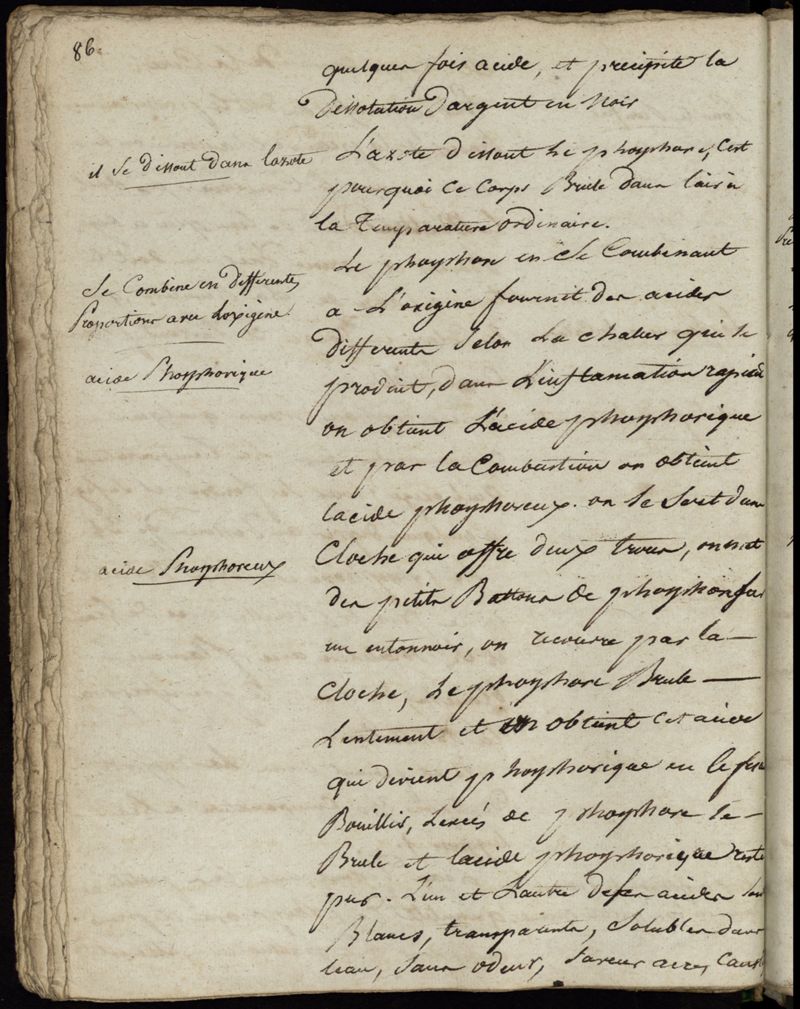 86.
quelques fois acide, et precipite la
Dissolution d'argent en noir
il se dissout dans lazote
L'azote dissout le phosphore, C'est
pourquoi ce Corps Brule dans l'air a
la Temparature ordinaire.
Se Combine en differentes
Proportions avec Loxigene
Le phosphore en se Combinant
a L'oxigène fournit des acides
differents Selon La chaleur qui se
acide Phosphorique
produit, dans L'inflamation rapide
on obtient L'acide phosphorique
et par la Combustion on obtient
lacide phosphoreux. on se Sert d'une
acide Phosphoreux
Cloche qui offre deux trous, on met
des petits Battons de phosphore sur
un entonnoir, on recouvre par la
Cloche, Le phosphore Brule
Lentement et on obtient cet acide
qui devient phosphorique en le fesant
Bouillir, Lexcés de phosphore se
Brule et lacide phosphorique reste
pur. L'un et L'autre de ces acides sont
Blancs, transparents, Solubles dans
leau, Sans odeur, Saveur acre,